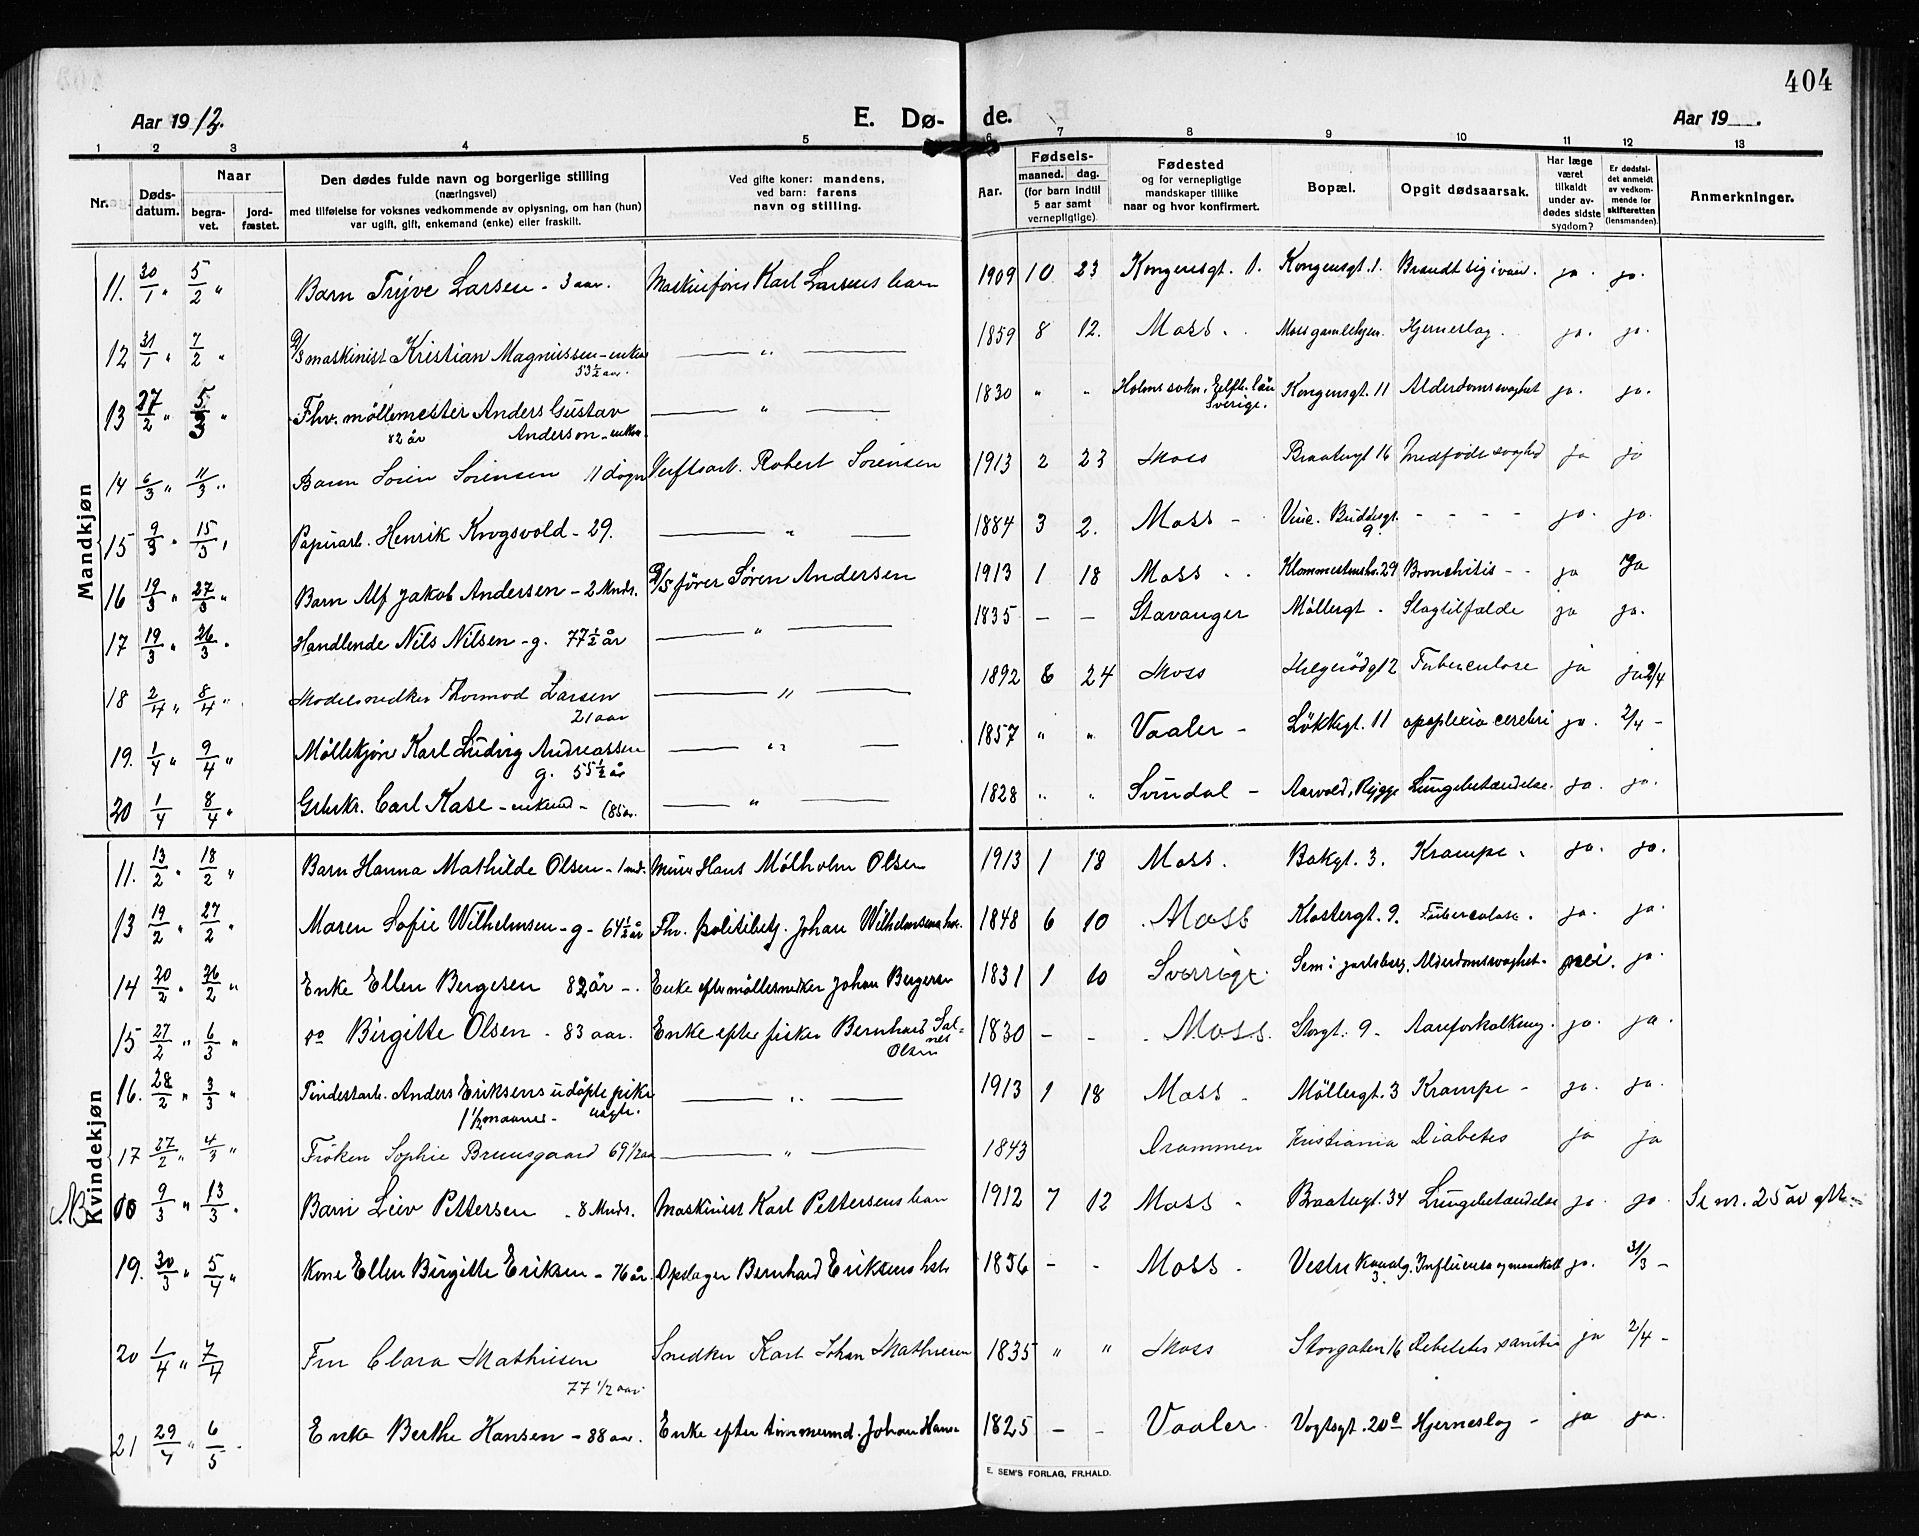 404
Aar 1913.
E. Dø-
de.
Aar 19__.
1 2 3 4 5 6 7 8 9 10 11 12 13
Nr.
Døds-
datum.
Naar
begra-
vet.
jord-
fæstet.
Den dødes fulde navn og borgerlige stilling
(næringsvei)
med tilføielse for voksnes vedkommende av oplysning, om han (hun)
var ugift, gift, enkemand (enke) eller fraskilt.
Ved gifte koner: mandens,
ved barn: farens
navn og stilling.
Aar.
Fødsels-
maaned. dag.
(for barn indtil
5 aar samt
vernepligtige)
Fødested
og for vernepligtige
mandskaper tillike
naar og hvor konfirmert.
Bopæl.
Opgit dødsaarsak.
Har læge
været
tilkaldt
under av-
dødes sidste
sygdom?
Er dødsfal-
det anmeldt
av vedkom-
mende for
skifteretten
(lensmanden)
Anmerkninger.
Mandkjøn
11. 30/1 " 5/2 " Barn Trÿve Larsen - 3 aar. Maskinfører Karl Larsens barn 1909 10 23 Kongensgt. 1. Kongensgt. 1. Brændt sig i vand. ja. ja.
12 31/1 " 7/2 " D/S maskinist Kristian Magnussen - enkem 53½ aar. — " — 1859 8 12. Moss. Moss gamlehjem. Hjerneslag. ja. ja.
13 27/2 " 5/3 " Fhv. møllemester Anders Gustav
82 år Anderson - enkem. — " — 1830 " " Holms sokn. Elfsb. län
Sverige. Kongensgt. 11 Alderdomssvaghet ja. ja.
14 6/3 " 11/3 " Barn Soren Sorensen 11 døgn Verftsarb. Robert Sorensen 1913 2 23 Moss Braatengt 16 Medfødt svaghed ja ja
15 9/3 " 15/3 " Papirarb. Henrik Krogsvold - 29. — " — 1884 3 2. Moss - Vinc. Buddesgt.
9. - - - - ja. ja.
16 19/3 " 27/3 " Barn Alf Jakob Andersen - 2 Mndr. D/S fører Søren Andersen 1913 1 18 Moss Klommestensbr. 29 Bronchitis - - ja Ja
17 19/3 " 26/3 " Handlende Nils Nilsen - g. 77½ år — " — 1835 - - Stavanger Møllergt - Slagtilfælde ja ja.
18 2/4 " 8/4 " Modelsnedker Thormod Larsen
21 aar — " — 1892 6 24 Moss Helgerødgt 2 Tuberculose ja ja 2/4
19. 1/4 " 9/4 " Møllekjøn Karl Ludvig Andreassen
g. 55½ år — " — 1857 " " Vaaler - Løkkegt. 11 apoplexia cerebri ja. 2/4 -
20 1/4 8/4 " Grbrkr. Carl Kase - enkemd - (85 år. — " — 1828 " " Svindal - Aarvold, Rygge Lungebetændelse. ja. ja.
Kvindekjøn
11. 13/2 " 18/2 " Barn Hanna Mathilde Olsen - 1 md. Murer Hans Mølholm Olsen 1913 1 18 Moss. Bakgt. 3. Krampe. ja. ja.
13 19/2 " 27/2 " Maren Sofie Wilhelmsen - g - 64½ år Fhv. politibetj. Johan Wilhelmsens hus. 1848 6 10 Moss Klostergt. 9. Tuberculose. ja. ja.
14 20/2 " 26/2 " Enke Ellen Bergersen 82 år -. Enke efter møllesnedker Johan Bergersen 1831 1 10 Sverrige. Sem i Jarlsberg. Alderdomssvaghet. nei. ja.
15 27/2 " 6/3 " do Birgitte Olsen - 83 aar. Enke efter fisker Bernhard Sal=
nes
Olsen 1830 - - Moss. Storgt. 9 - Aareforkalkning. ja. ja.
16. 28/2 " 3/3 " Tindestarb. Anders Eriksens udøpte pike
1½ maaned - uægte. — " — 1913 1 18 Moss - Møllergt. 3 Krampe - ja. ja.
17 27/2 " 4/3 " Frøken Sophie Bruusgaard 69 1/2 aar — " — 1843 Drammen Kristiania Diabetes ja ja
NB 9/3 " 13/3 " Barn Leiv Pettersen - 8 Mndr. Maskinist Karl Pettersens barn 1912 7 12 Moss - Braatengt. 34 Lungebetændelse ja. ja. Se nr. 25
19. 30/3 " 5/4 " Kone Ellen Birgitte Eriksen - 76 år. Opdager Bernhard Eriksens hstr. 1836 - - Moss. Vestre Kanalg.
3. Influensa ja. 31/3 -
20 1/4 " 7/4 Fru Clara Mathiesen
77 1/2 aar. Snedker Karl Johan Mathiesen 1835 " " Moss Storgaten 16 ja 2/4 -
21 29/4 " 6/5 - Enke Berthe Hansen - 88 aar. Enke efter tømmermd. Johan Hansen 1825 - - Vaaler. Vogtsgt. 20 Hjerneslag - ja ja.
E. SEM'S FORLAG, FR.HALD.